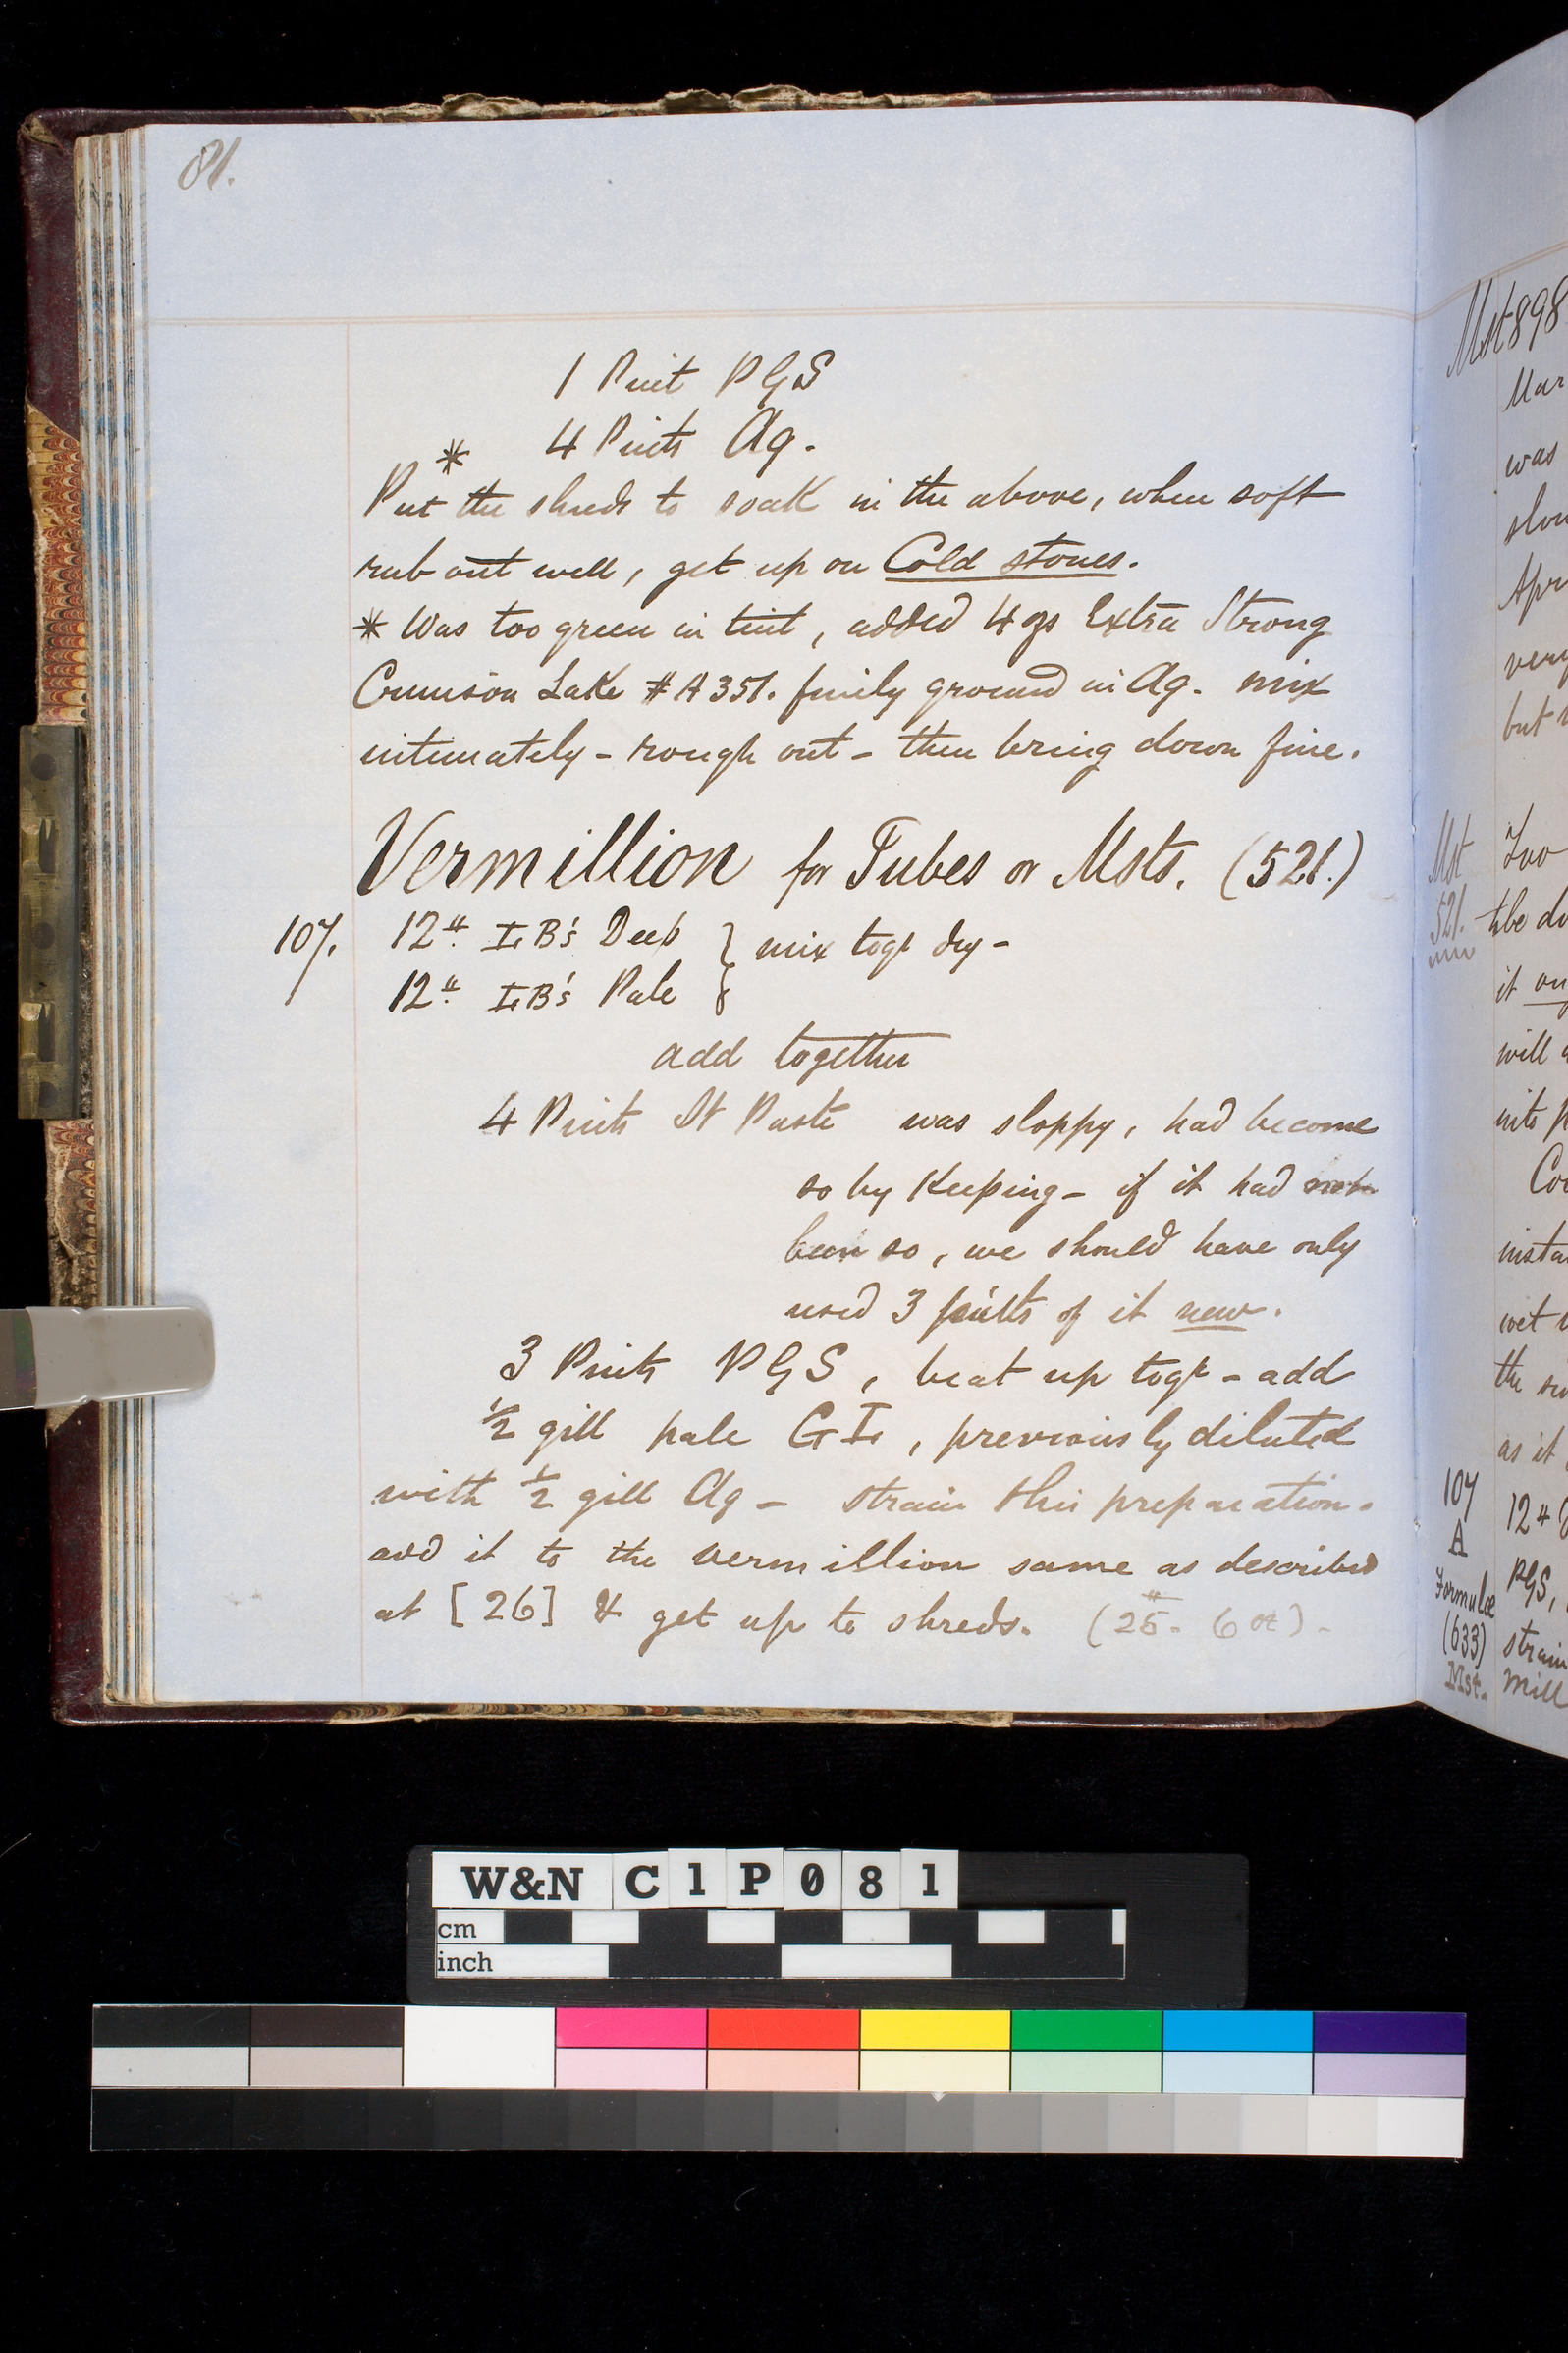 81.
1 Pint PGS
* 4 Pints Aq.
Put the shreds to soak in the above, when soft
rub out well, get up on Cold stones.
* Was too green in tint, added 4 ozs Extra Strong
Crimson Lake # A 351. finely ground in Aq. mix
intimately - rough out - then bring down fine.
Vermillion for Tubes or Msts. (521.)
107. 12 # LB's Deep } mix togr dry -
12 # LB's Pale
add together
4 Pints St Paste was sloppy, had become
so by Keeping - if it had not
been so, we should have only
used 3 pints of it new.
3 Pints PGS, beat up togr - add
1/2 gill pale GL, previously diluted
with 1/2 gill Aq - strain this preparation.
add it to the vermillion same as described
at [26] & get up to shreds. (25 # 6 oz) -
Mst 898
Mar
was
slow
Apr
very
but
Mst
521.
Too
the
it
will
into
Co
insta
wet
the
as it
107
A
Formulæ
(633)
Mst.
12 #
PGS,
strain
mill
W&N C1P081
cm
inch